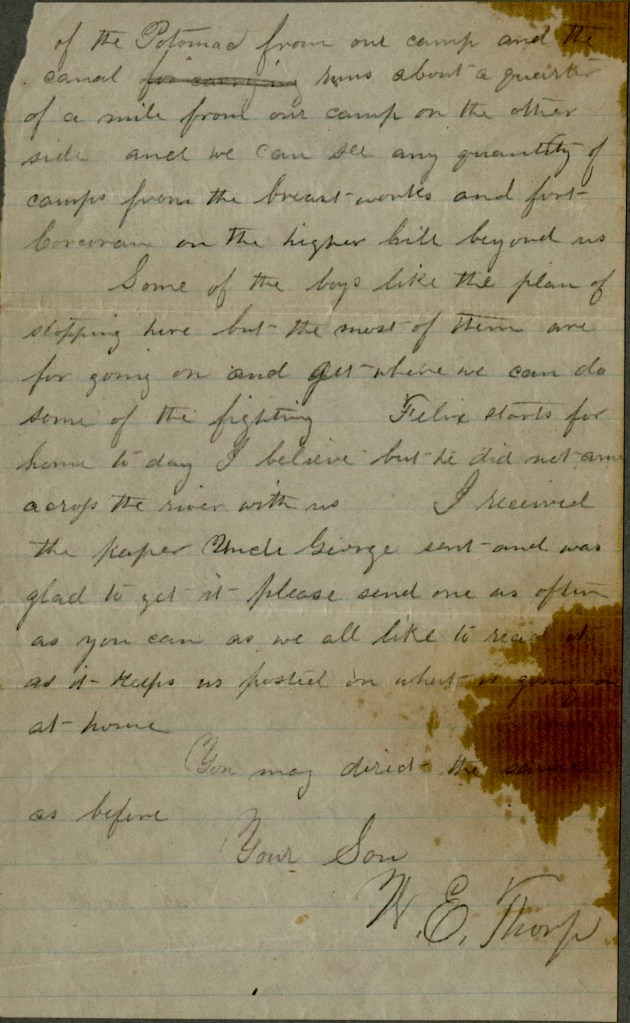 of the Potomac from our camp and the
canal for carrying runs about a quarter
of a mile from our camp on the other
side and we can see any quantity of
camps from the breast-works and fort-
Corcoran on the higher hill beyond us
Some of the boys like the plan of
stopping here but the most of them are
for going on and get where we can do
some of the fighting Felix starts for
home to day I believe but he did not come
across the river with us I received
the paper Uncle George sent and was
glad to get it please send one as often
as you can as we all like to read it
as it keeps us posted on what is going on
at home
You may direct the same
as before
Your Son
W. E. Thorp